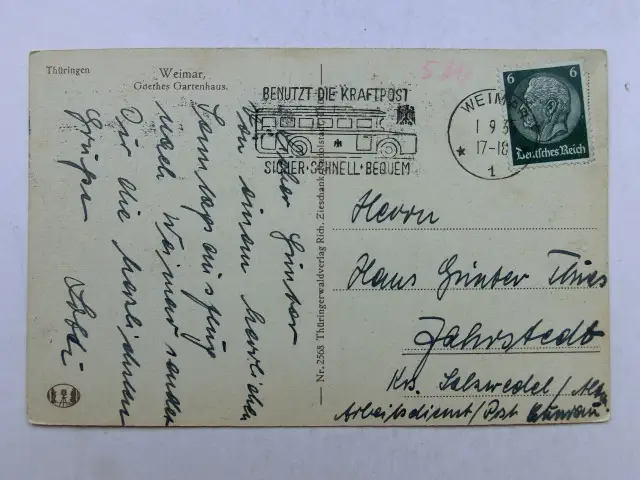 Thüringen
Weimar,
Goethes Gartenhaus.
BENUTZT DIE KRAFTPOST
SICHER · SCHNELL · BEQUEM
WEIMAR
1 9 3
17-18
* 1
6 6
Deutsches Reich
5 M
Lieber Günter
Von einem herrlichen
Samstagsausflug
nach Weimar sendet
Dir die herzlichsten
Grüße
Nr. 2568 Thüringerwaldverlag Rich. Zieschank
Herrn
Hans Günter Thies
Jahrstedt
Krs. Salzwedel / Altm.
Arbeitsdienst / Post Kunrau.